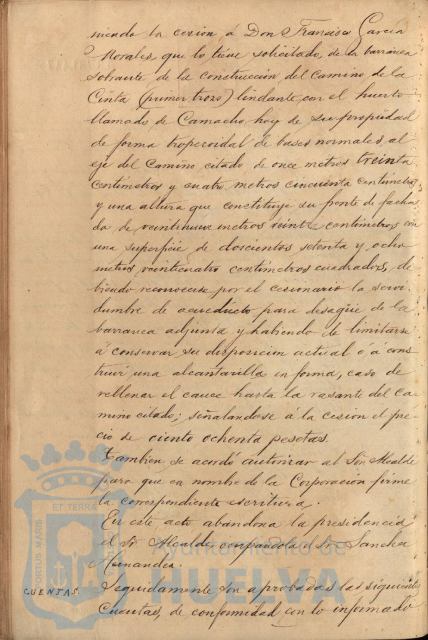 niendo la cesion, á Don Francisco Garcia
Morales que lo tiene solicitado, de la barranca
sobrante de la construccion del Camino de la
Cinta (primer trozo) lindante con el huerto
llamado de Camacho hoy de su propiedad
de forma trapezoidal de bases normales, al
eje del Camino citado de once metros treinta
centimetros y cuatro metros cincuenta centimetros
y una altura que constituye su frente de facha-
da de veintinueve metros veinte centimetros con
una superficie de doscientos setenta y ocho
metros, veinticuatro centimetros cuadrados, de-
biendo reconocerse por el cesionario la servi-
dumbre de acueducto para desagüe de la
barranca adjunta y habiendo de limitarse
á conservar su disposicion actual ó á cons-
truir una alcantarilla en forma, caso de
rellenar el cauce hasta la rasante del Ca-
mino citado; señalandose á la cesion el pre-
cio de ciento ochenta pesetas.
Tambien se acordó autorizar al Sr. Alcalde
para que en nombre de la Corporacion firme
la correspondiente escritura.
En este acto abandona la presidencia
el Sr. Alcalde, ocupandola el Sr. Sancha
Hernandez.
CUENTAS. Seguidamente son aprobadas las siguientes
Cuentas, de conformidad con lo informado
PORTUS MARIS ET TERRA
Ayuntamiento de
HUELVA